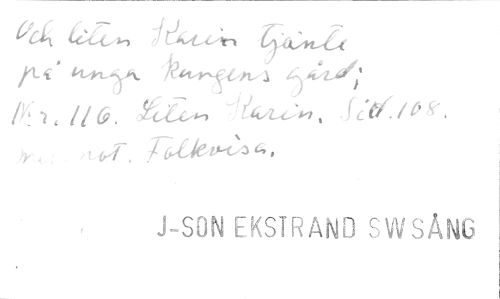 Och liten Karin tjänte
på unga kungens gård;
Nr. 116. Liten Karin. Sid. 108.
med not. Folkvisa.
J-SON EKSTRAND SWSÅNG